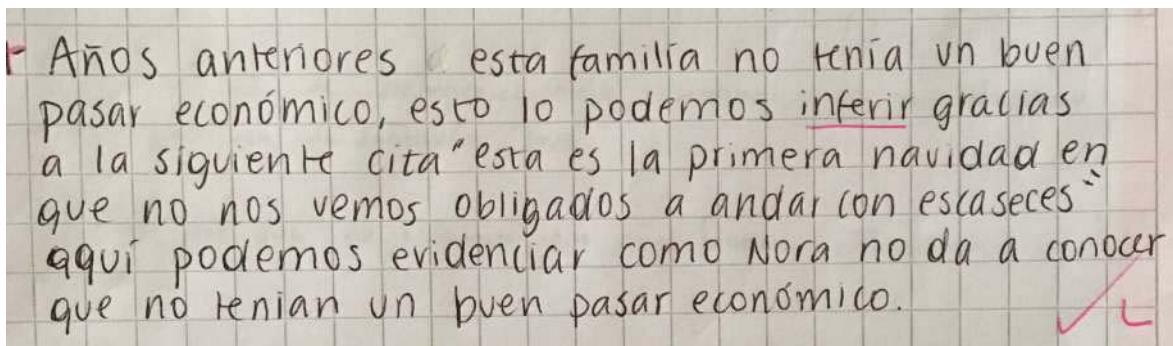 Años anteriores esta familia no tenía un buen
pasar económico, esto lo podemos inferir gracias
a la siguiente cita "esta es la primera navidad en
que no nos vemos obligados a andar con escaseces"
aquí podemos evidenciar como Nora no da a conocer
que no tenian un buen pasar económico.
L